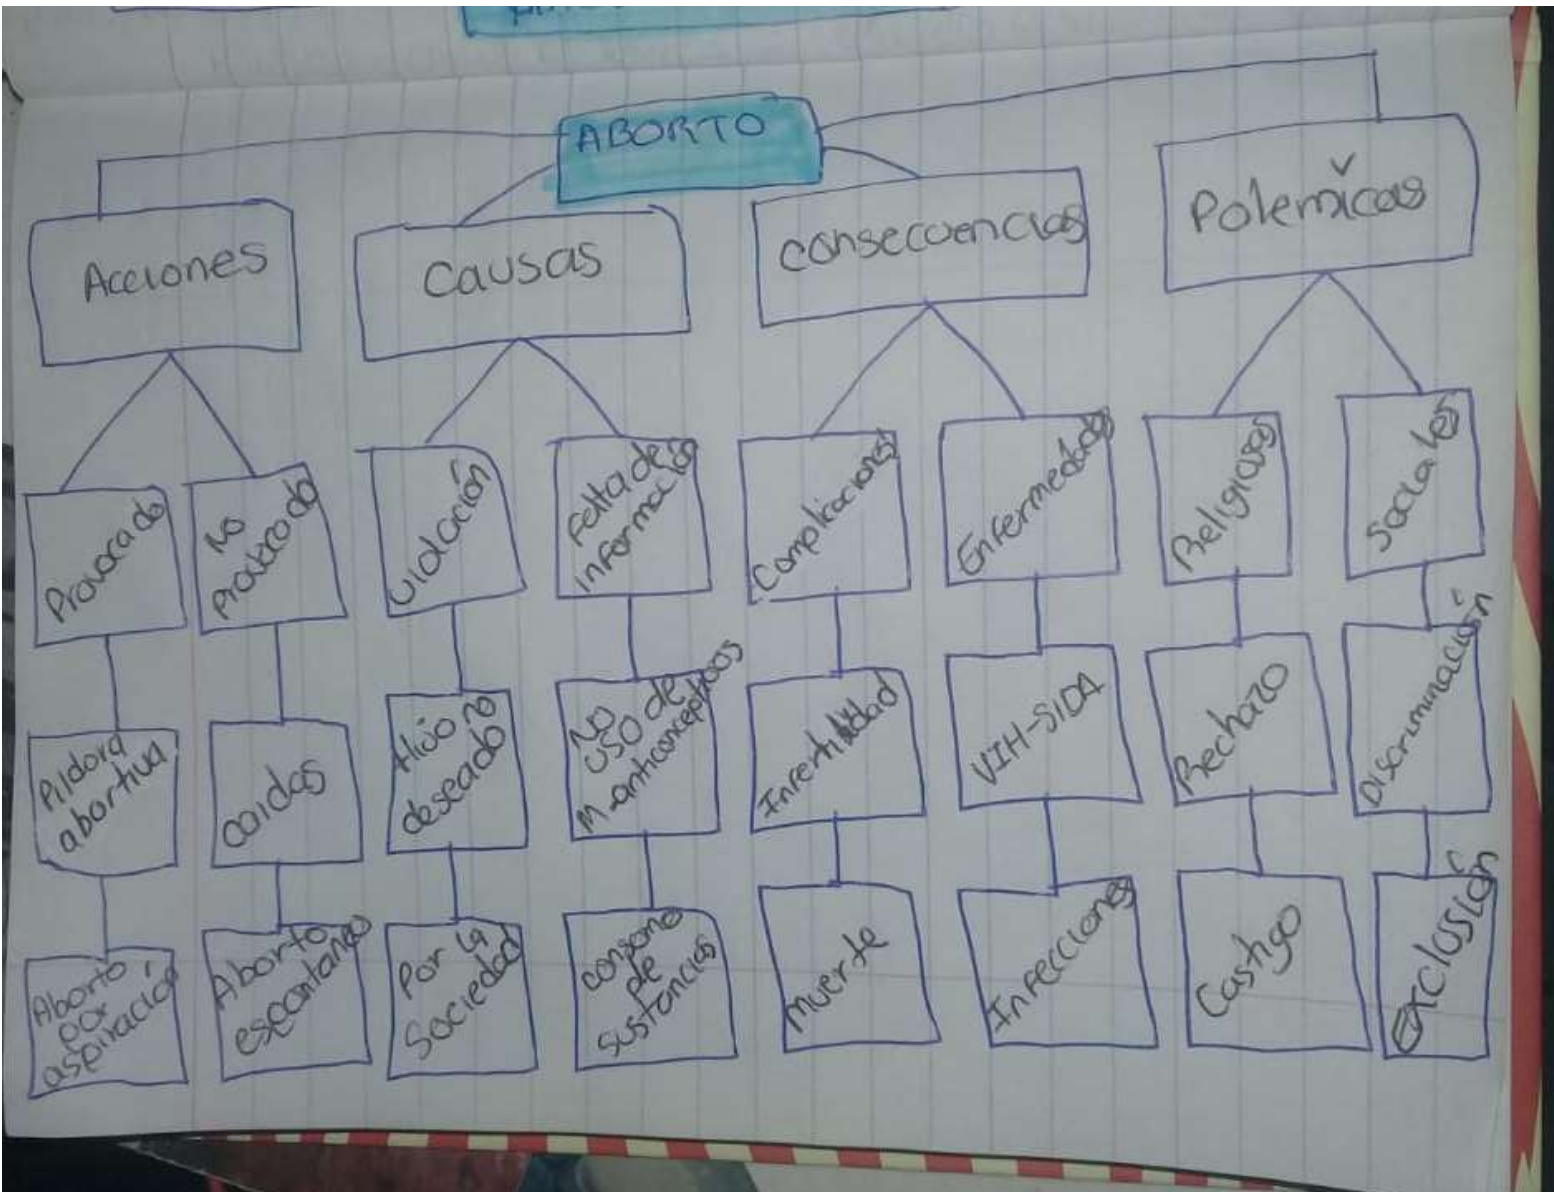 ABORTO
Acciones
Causas
Consecuencias
Polemicas
Provocado
No
Provocado
Violación
Falta de
información
Complicaciones
Enfermedades
Religiosas
Sociales
Pildora
abortiva
caidas
Hijo no
deseado
No
USO de
M-anticonceptivos
Infertilidad
VIH-SIDA
Rechazo
Discriminación
Aborto
por
aspiración
Aborto
espontaneo
Por la
Sociedad
consumo
de
sustancias
Muerte
Infecciones
Castigo
Exclussión